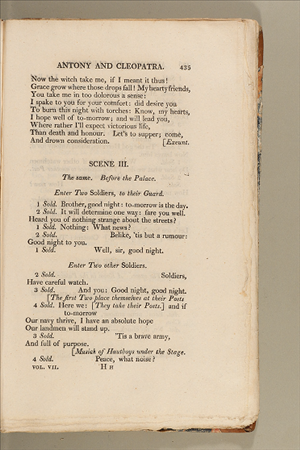 ANTONY AND CLEOPATRA. 435
Now the witch take me, if I meant it thus!
Grace grow where those drops fall! My hearty friends,
You take me in too dolorous a sense:
I spake to you for your comfort: did desire you
To burn this night with torches: Know, my hearts,
I hope well of to-morrow; and will lead you,
Where rather I'll expect victorious life,
Than death and honour. Let's to supper; come,
And drown consideration. [Exeunt.
SCENE III.
The same. Before the Palace.
Enter Two Soldiers, to their Guard.
1 Sold. Brother, good night: to-morrow is the day.
2 Sold. It will determine one way: fare you well.
Heard you of nothing strange about the streets?
1 Sold. Nothing: What news?
2 Sold. Belike, 'tis but a rumour:
Good night to you.
1 Sold. Well, sir, good night.
Enter Two other Soldiers.
2 Sold. Soldiers,
Have careful watch.
3 Sold. And you: Good night, good night.
[The first Two place themselves at their Posts
4 Sold. Here we: [They take their Posts.] and if
to-morrow
Our navy thrive, I have an absolute hope
Our landmen will stand up.
3 Sold. 'Tis a brave army,
And full of purpose.
[Musick of Hautboys under the Stage.
4 Sold. Peace, what noise?
VOL. VII. H H